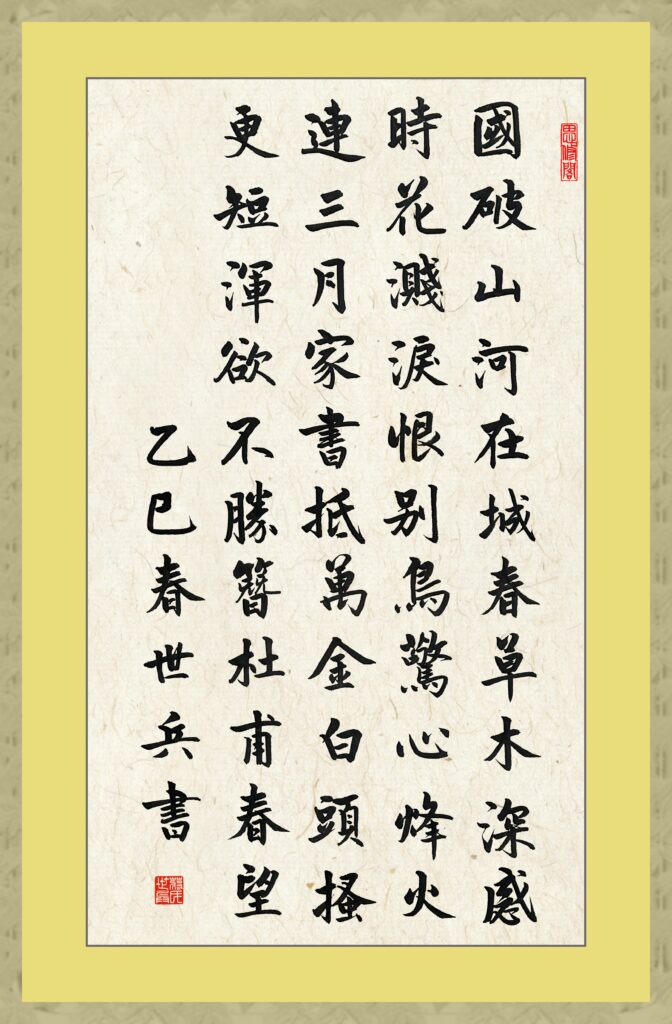 思修閣
國破山河在城春草木深感
時花濺淚恨别鳥驚心烽火
連三月家書抵萬金白頭搔
更短渾欲不勝簪杜甫春望
乙巳春世兵書